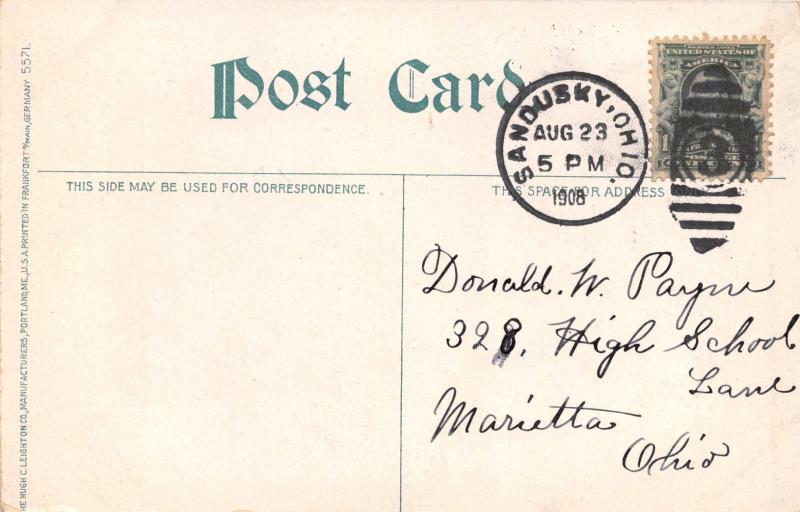 Post Card
SANDUSKY, OHIO.
AUG 23
5 PM
1908
SERIES 1902
UNITED STATES OF
AMERICA
THIS SIDE MAY BE USED FOR CORRESPONDENCE.
THIS SPACE FOR ADDRESS ONLY.
Donald. W. Payne
328, High School
Lane
Marietta
Ohio
HE HUGH C. LEIGHTON CO., MANUFACTURERS, PORTLAND, ME., U.S.A. PRINTED IN FRANKFORT o/MAIN, GERMANY 5571.